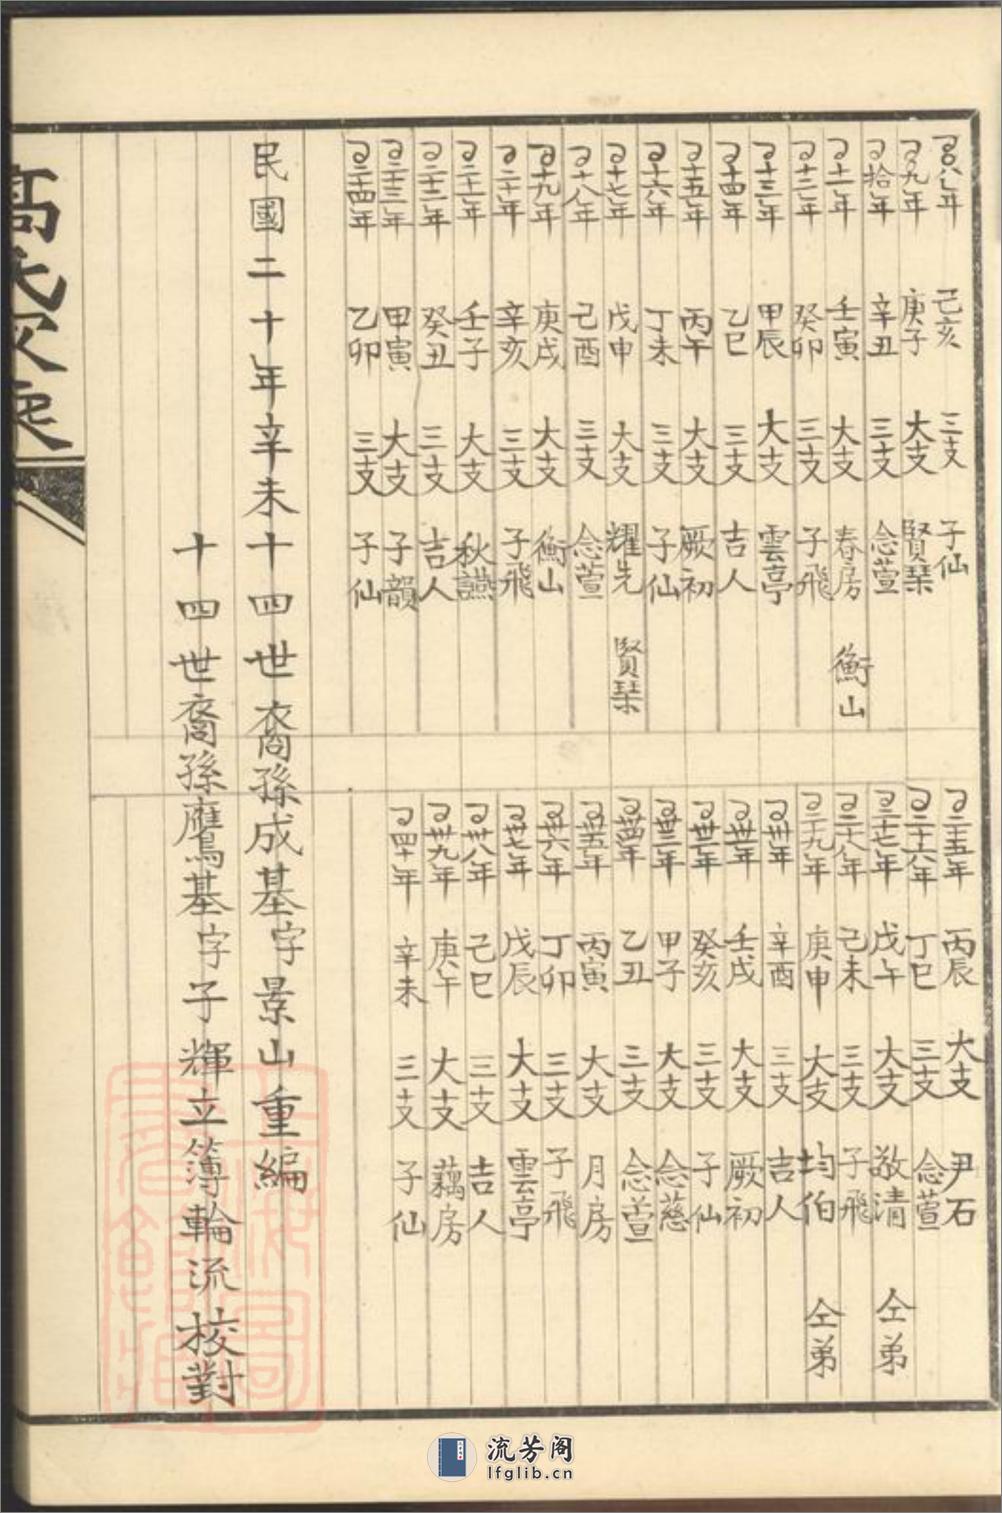 八年 己亥 三支 子仙
九年 庚子 大支 賢琹
拾年 辛丑 三支 念萱
十一年 壬寅 大支 春房 衡山
十二年 癸卯 三支 子飛
十三年 甲辰 大支 雲亭
十四年 乙巳 三支 吉人
十五年 丙午 大支 厥初
十六年 丁未 三支 子仙
十七年 戊申 大支 耀先 賢琹
十八年 己酉 三支 念萱
十九年 庚戌 大支 衡山
二十年 辛亥 三支 子飛
二十一年 壬子 大支 秋讌
二十二年 癸丑 三支 吉人
二十三年 甲寅 大支 子韻
二十四年 乙卯 三支 子仙
二十五年 丙辰 大支 尹石
二十六年 丁巳 三支 念萱
二十七年 戊午 大支 敬清 仝弟
二十八年 己未 三支 子飛
二十九年 庚申 大支 均伯 仝弟
卅年 辛酉 三支 吉人
卅一年 壬戌 大支 厥初
卅二年 癸亥 三支 子仙
卅三年 甲子 大支 念慈
卅四年 乙丑 三支 念萱
卅五年 丙寅 大支 月房
卅六年 丁卯 三支 子飛
卅七年 戊辰 大支 雲亭
卅八年 己巳 三支 吉人
卅九年 庚午 大支 藕房
四十年 辛未 三支 子仙
民國二十年辛未十四世裔孫成基字景山重編
十四世裔孫鷹基字子輝立簿輪流校對
流芳阁
lfglib.cn